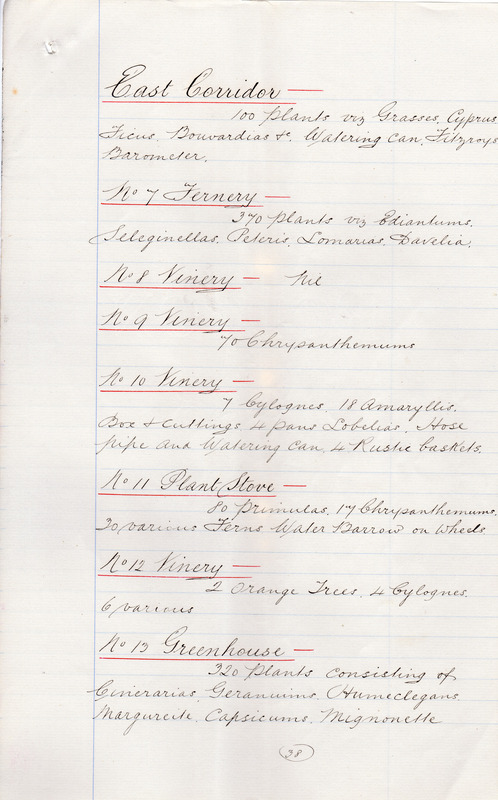 East Corridor —
100 Plants viz Grasses, Cyprus
Ficus, Bouvardias &c. Watering Can, Fitzroys
Barometer.
No 7 Fernery —
370 Plants viz Ediantums.
Seleginellas. Peteris. Lomarias. Davelia.
No 8 Vinery — Nil
No 9 Vinery —
70 Chrysanthemums
No 10 Vinery —
7 Cylognes, 18 Amaryllis.
Box & Cuttings, 4 pans Lobelias, Hose
pipe and Watering Can, 4 Rustic baskets.
No 11 Plant Stove —
80 Primulas, 17 Chrysanthemums.
30 various Ferns Water Barrow on Wheels
No 12 Vinery —
2 Orange Trees, 4 Cylognes.
6 various
No 13 Greenhouse —
320 Plants consisting of
Cinerarias, Geranuims, Humeclegans.
Margureite, Capsicums, Mignonette
38